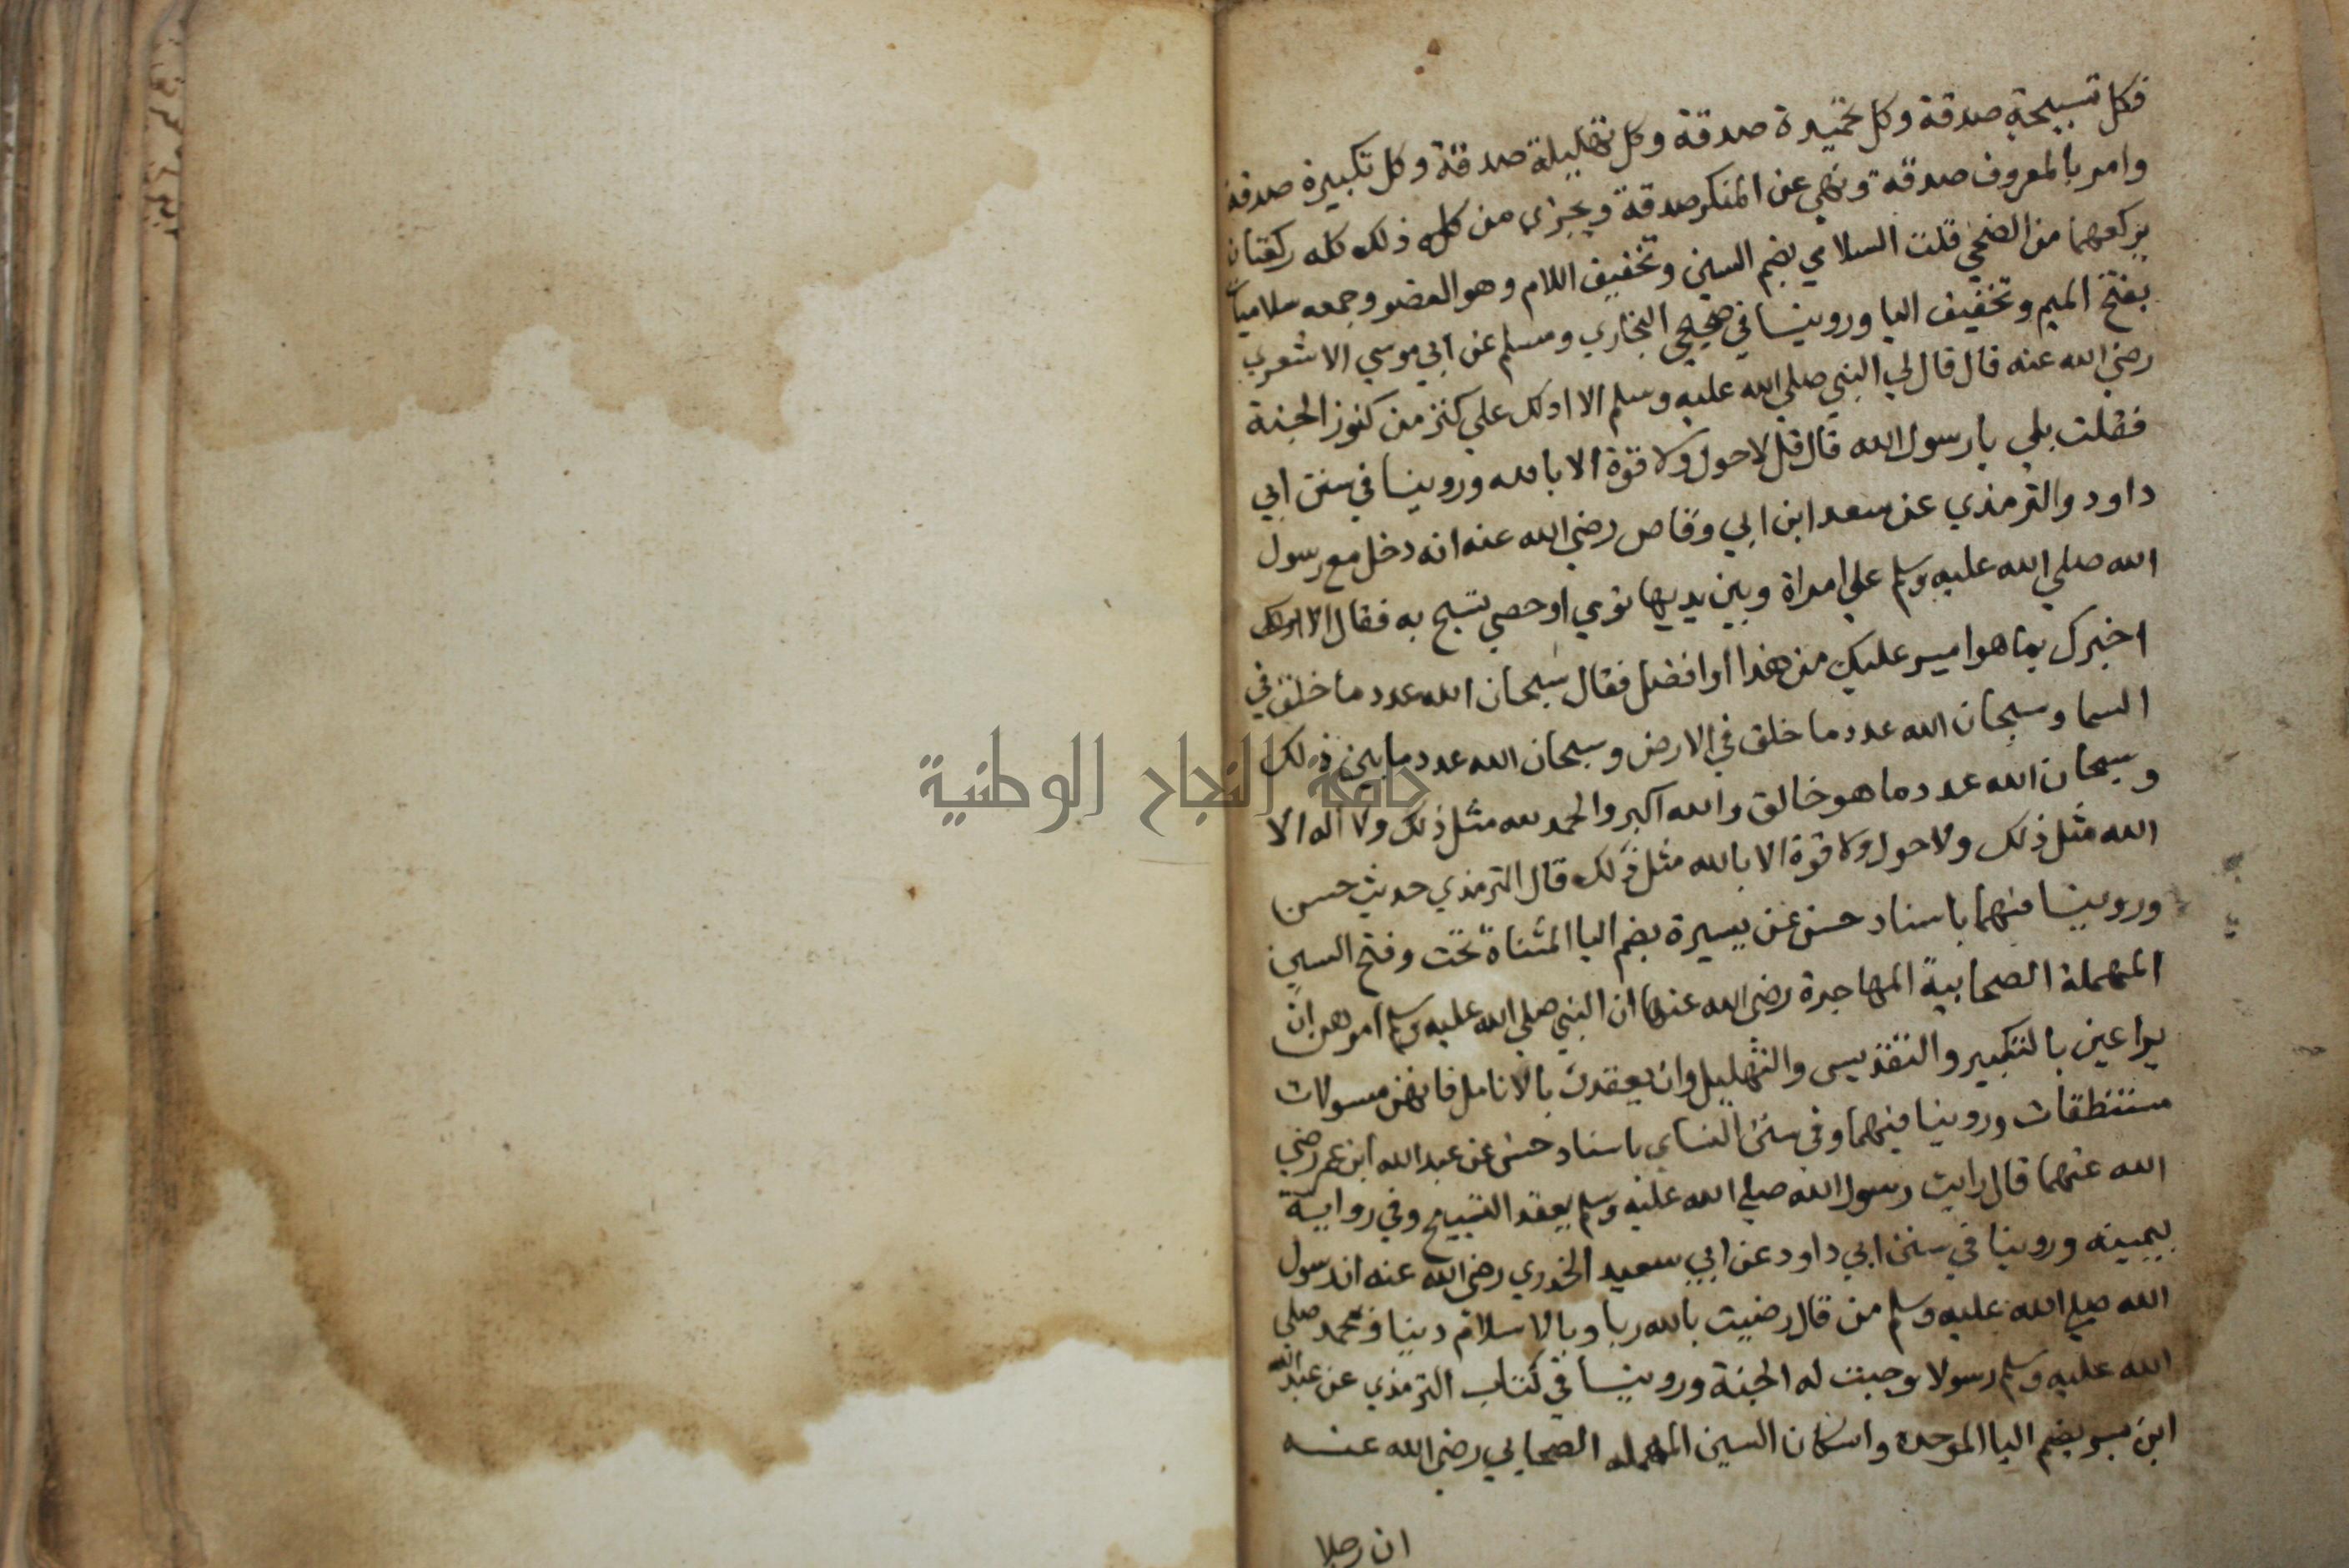 فكل تسبيحة صدقة وكل تحميدة صدقة وكل تهليلة صدقة وكل تكبيرة صدقة
وامر بالمعروف صدقة ونهي عن المنكر صدقة ويجزي من كل ذلك كله ركعتان
يركعهما من الضحي قلت السلامي بضم السين وتخفيف اللام وهو العضو وجمعه سلاميات
بفتح الميم وتخفيف اليا وروينا في صحيحي البخاري ومسلم عن ابي موسي الاشعري
رضي الله عنه قال قال لي النبي صلي الله عليه وسلم الا ادلك علي كنز من كنوز الجنة
فقلت بلي يا رسول الله قال قل لا حول ولا قوة الا بالله وروينا في سنن ابي
داود والترمذي عن سعد ابن ابي وقاص رضي الله عنه انه دخل مع رسول
الله صلي الله عليه وسلم علي امراة وبين يديها نوي او حصي تسبح به فقال الا
اخبرك بما هو ايسر عليك من هذا او افضل فقال سبحان الله عدد ما خلق في
السما وسبحان الله عدد ما خلق في الارض وسبحان الله عدد ما بين ذلك
وسبحان الله عدد ما هو خالق والله اكبر والحمد لله مثل ذلك ولا اله الا
الله مثل ذلك ولا حول ولا قوة الا بالله مثل ذلك قال الترمذي حديث حسن
وروينا فيهما باسناد حسن عن يسيرة بضم اليا المثناة تحت وفتح السين
المهملة الصحابية المهاجرة رضي الله عنها ان النبي صلي الله عليه وسلم امرهن ان
يراعين بالتكبير والتقديس والتهليل وان يعقدن بالانامل فانهن مسولات
مستنطقات وروينا فيهما وفي سنن النساي باسناد حسن عن عبد الله ابن عمر رضي
الله عنهما قال رايت رسول الله صلي الله عليه وسلم يعقد التسبيح وفي رواية
بيمينه وروينا في سنن ابي داود عن ابي سعيد الخدري رضي الله عنه ان رسول
الله صلي الله عليه وسلم من قال رضيت بالله ربا وبالاسلام دينا وبمحمد صلي
الله عليه وسلم رسولا وجبت له الجنة وروينا في كتاب الترمذي عن عبد الله
ابن بسر بضم البا الموحده واسكان السين المهمله الصحابي رضي الله عنه
ان رجلا
جامعة النجاح الوطنية